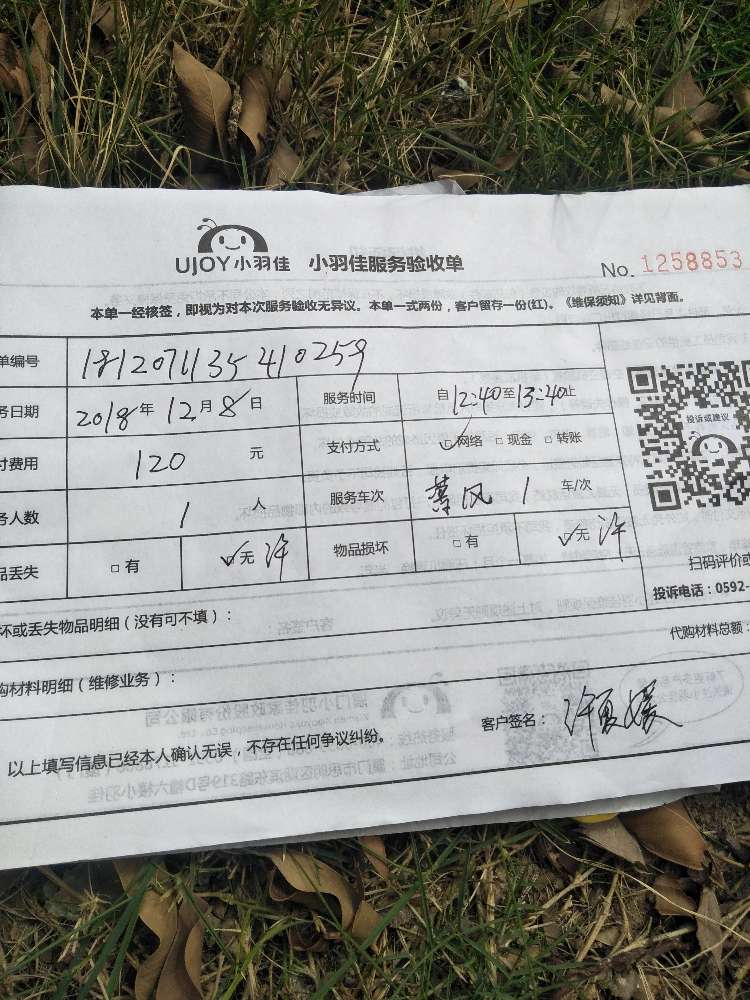 UJOY小羽佳 小羽佳服务验收单 No. 1258853
本单一经核签，即视为对本次服务验收无异议。本单一式两份，客户留存一份(红)。《维保须知》详见背面。
单编号 1812071135410259
务日期 2018年12月8日 服务时间 自12:40至13:40止
付费用 120元 支付方式 网络 □现金 □转账
务人数 1人 服务车次 1车/次
品丢失 □有 无 许 物品损坏 □有 无 许
投诉或建议
扫码评价或
投诉电话：0592-
坏或丢失物品明细（没有可不填）：
代购材料总额：
购材料明细（维修业务）：
客户签名：
以上填写信息已经本人确认无误，不存在任何争议纠纷。